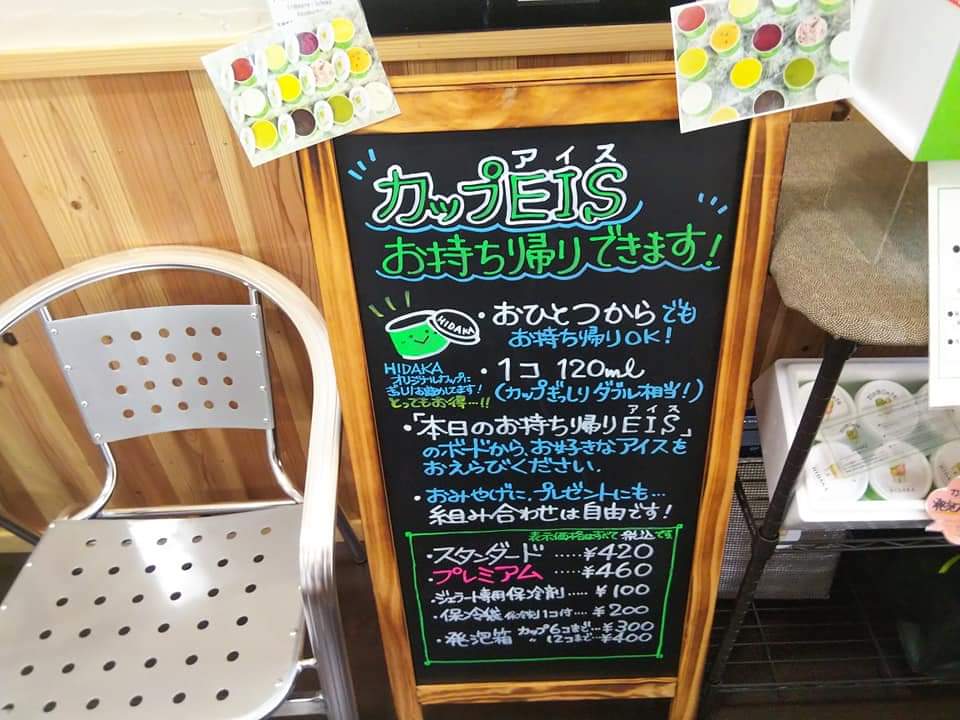 アイス
カップEIS
お持ち帰りできます!
HIDAKA
・おひとつからでも
お持ち帰りOK!
HIDAKA
オリジナルカップに
とってもお得…!!
・1コ 120ml
(カップぎっしりダブル相当!)
アイス
・「本日のお持ち帰りEIS」
のボードから、お好きなアイスを
おえらびください.
・おみやげに、プレゼントにも…
組み合わせは自由です!
表示価格はすべて税込です
・スタンダード……¥420
・プレミアム……¥460
・ジェラート専用保冷剤……¥100
・保冷袋 保冷剤1コ付……¥200
・発泡箱 カップ6コまで…¥300
〃 12コまで…¥400
HIDAKA